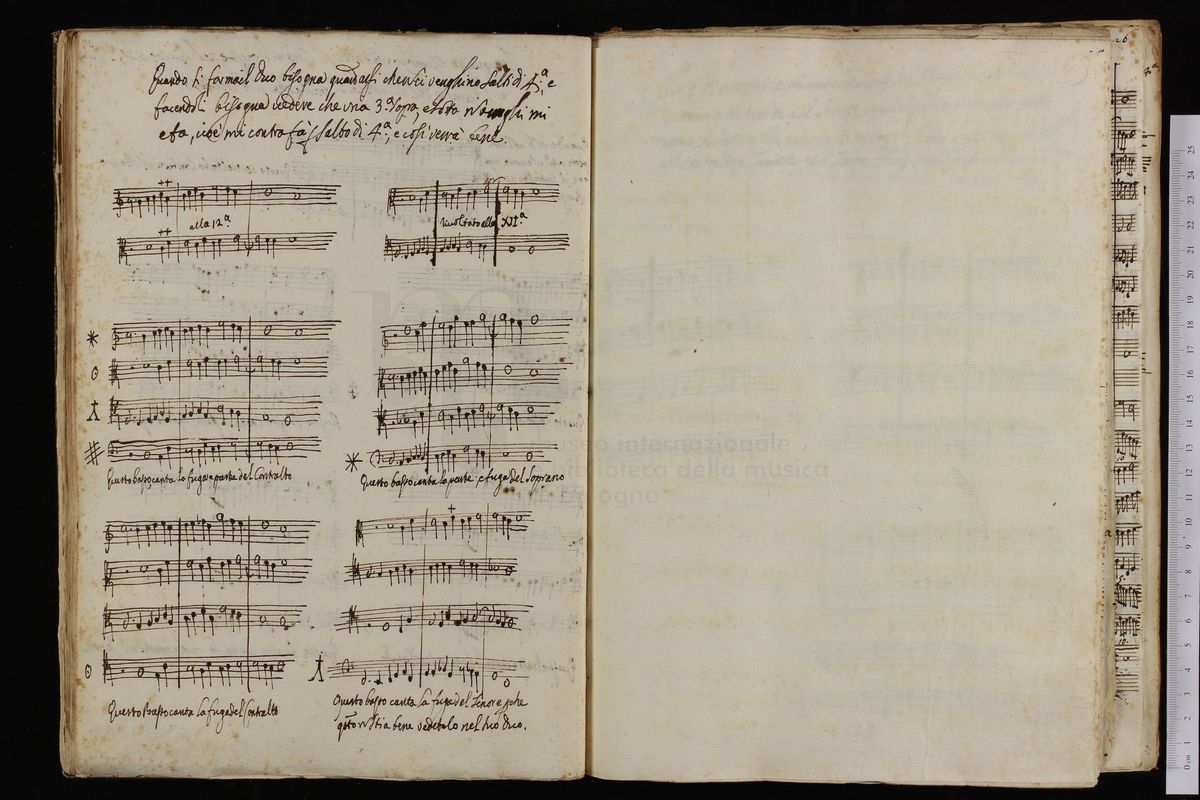 Quando si forma il Duo bisogna guardarsi che non ci venghino salti di 4.ª, e
facendoli bisogna vedere che una 3.ª sopra, e sotto venghi mi
e fa, cioè mi contra fà salto di 4.ª, e così verrà bene.
alla 12.ª
Rivoltato alla XII.ª
Questo basso canta la fuga e parte del Contralto
Questo basso canta la parte, e fuga del Soprano
museo internazionale
biblioteca della musica
bologna
Questo Basso canta la fuga del Contralto
Questo basso canta la fuga del Tenore, e che
stia bene vedetelo nel suo Duo.
0 cm 1 2 3 4 5 6 7 8 9 10 11 12 13 14 15 16 17 18 19 20 21 22 23 24 25